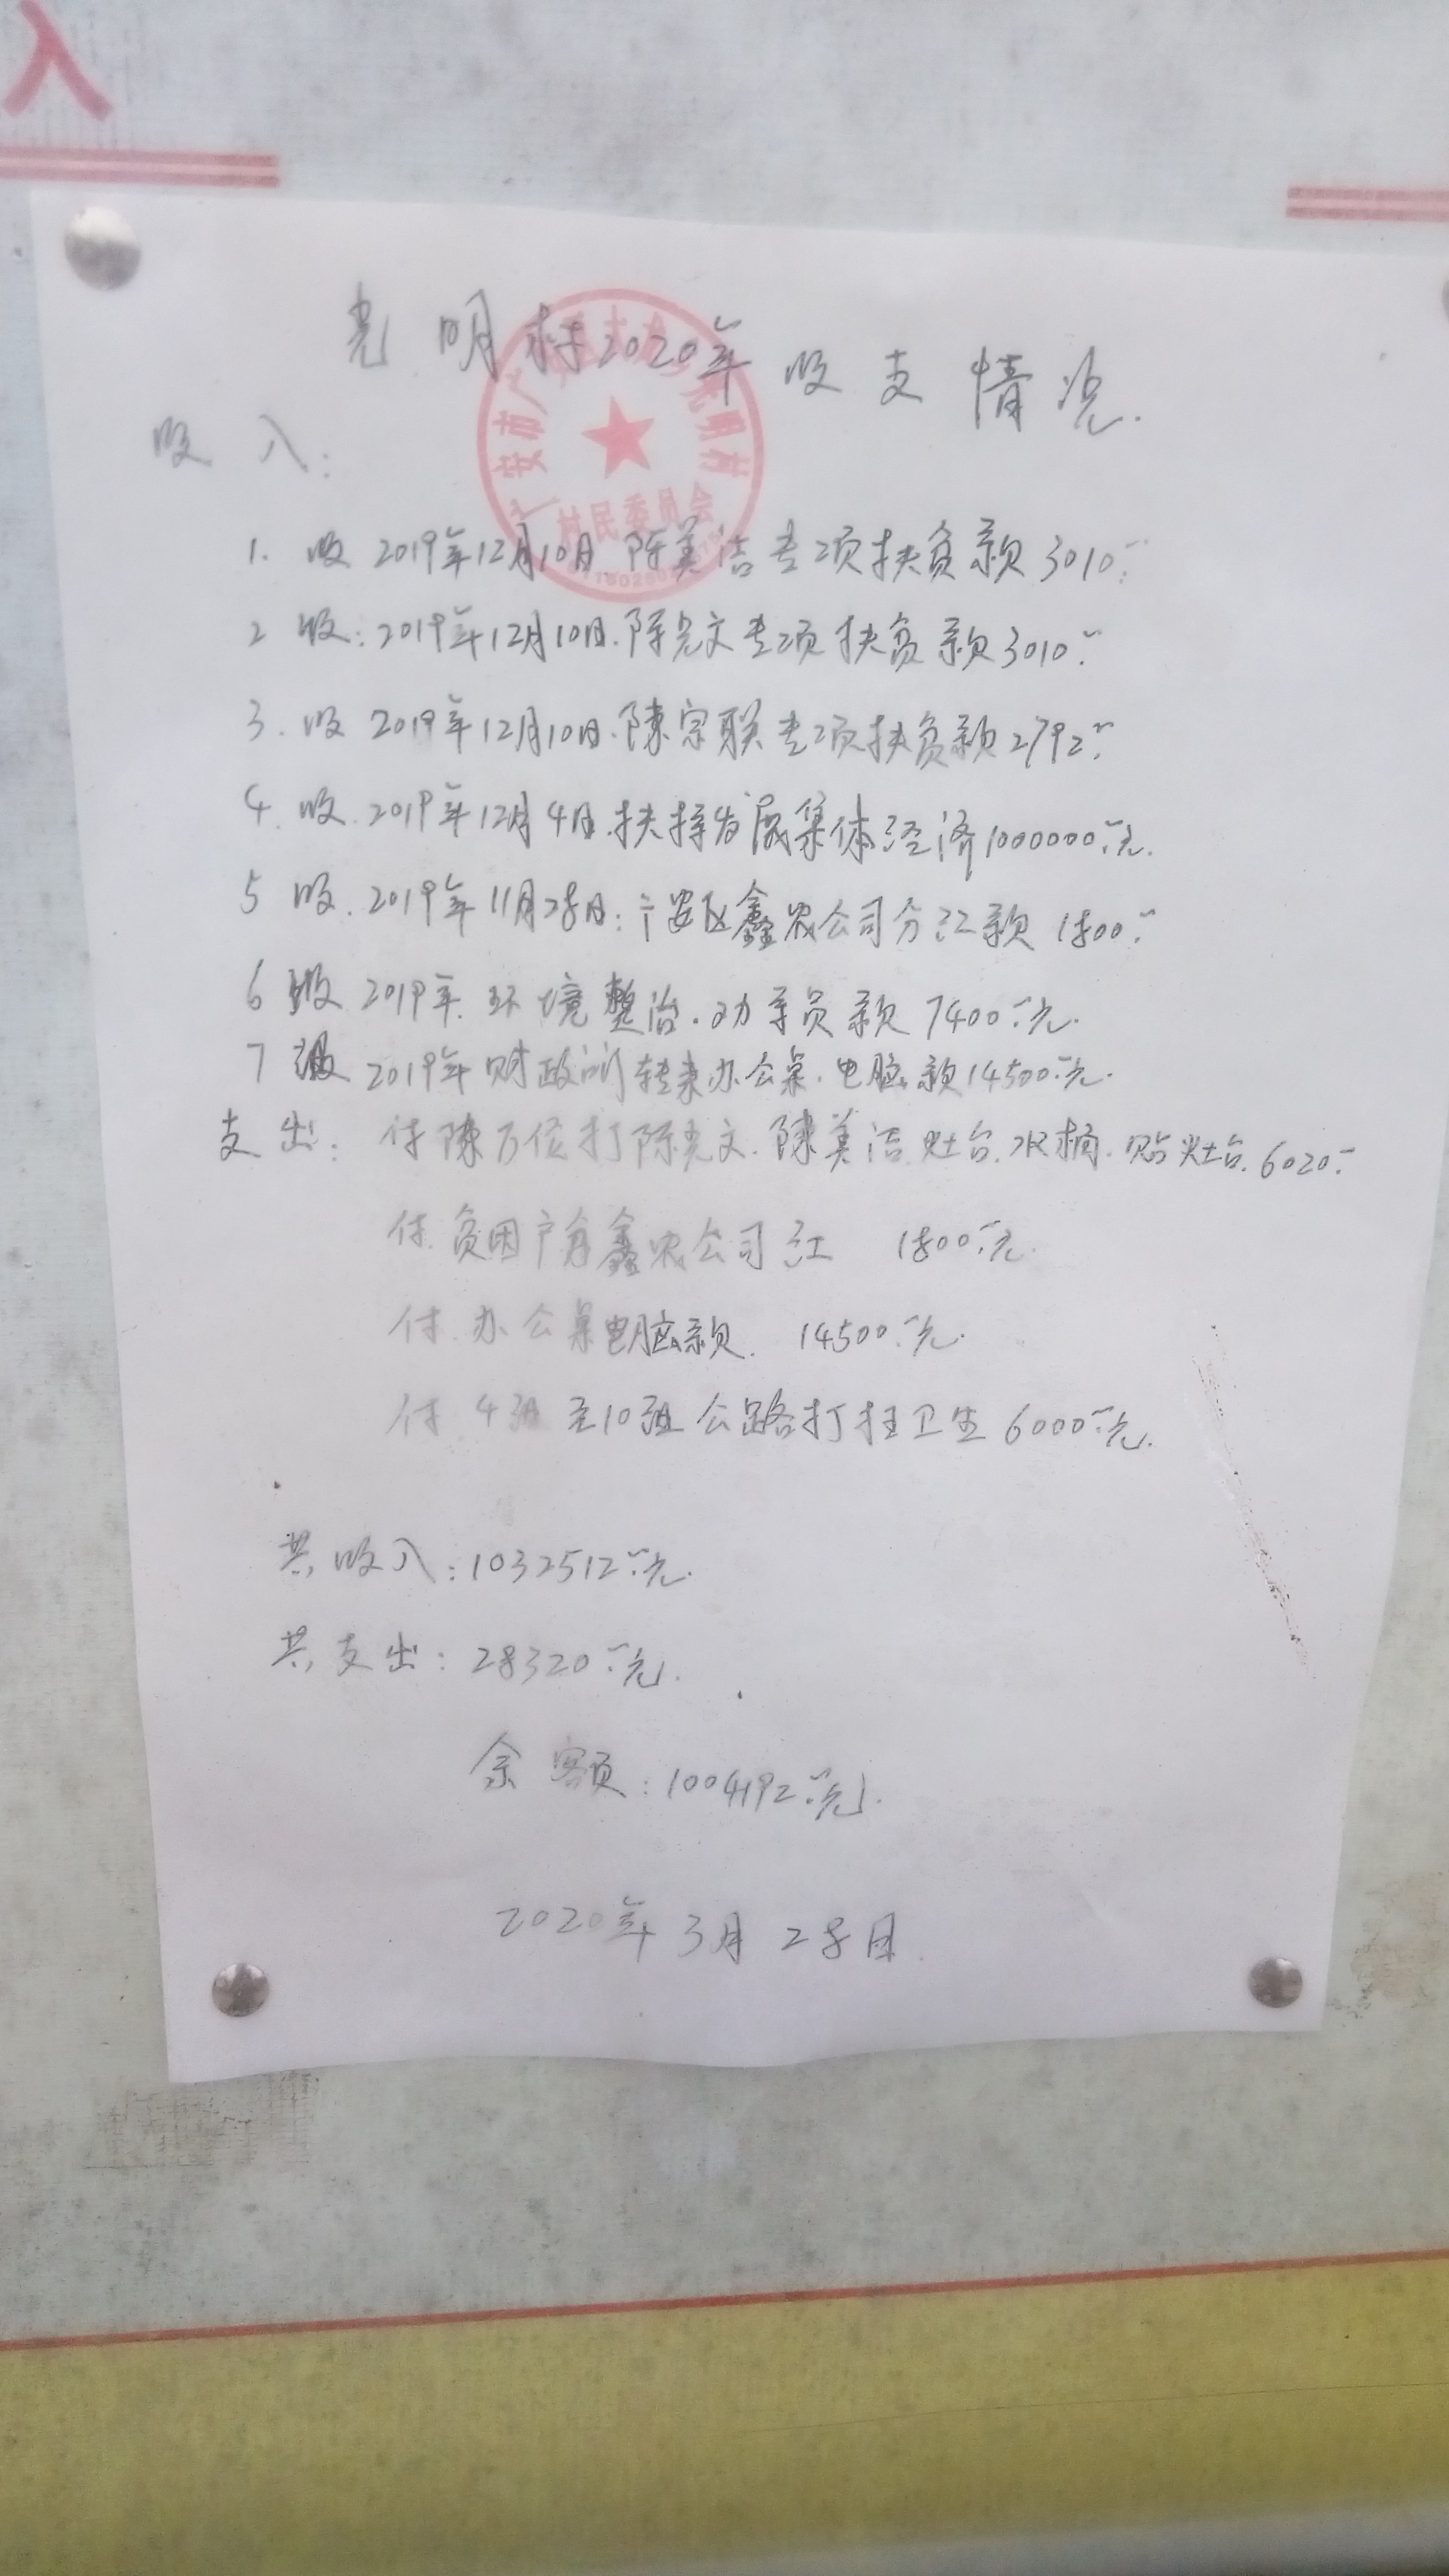 入
光明村2020年收支情况.
收入:
1. 收 2019年12月10日 陈美洁专项扶贫款 3010.
2 收: 2019年12月10日.陈光文专项扶贫款3010.
3. 收 2019年12月10日.陳宗联专项扶贫款2792.
4. 收. 2019年12月4日.扶持发展集体经济1000000.元.
5 收. 2019年11月28日: 广安区鑫农公司分红款 1800.
6 收 2019年.环境整治. 款 7400.元.
7 收 2019年财政所转来办公桌.电脑款14500.元.
支出: 付陳万 打陈光文.陳美洁灶台.水桶.贴灶台.6020.
付.贫困户 鑫农公司红 1800.元.
付.办公桌电脑款. 14500.元.
付 4组至10组公路打扫卫生 6000.元.
共收入: 1032512.元.
共支出: 28320.元.
余额: 1004192.元.
2020年3月28日.
村民委员会